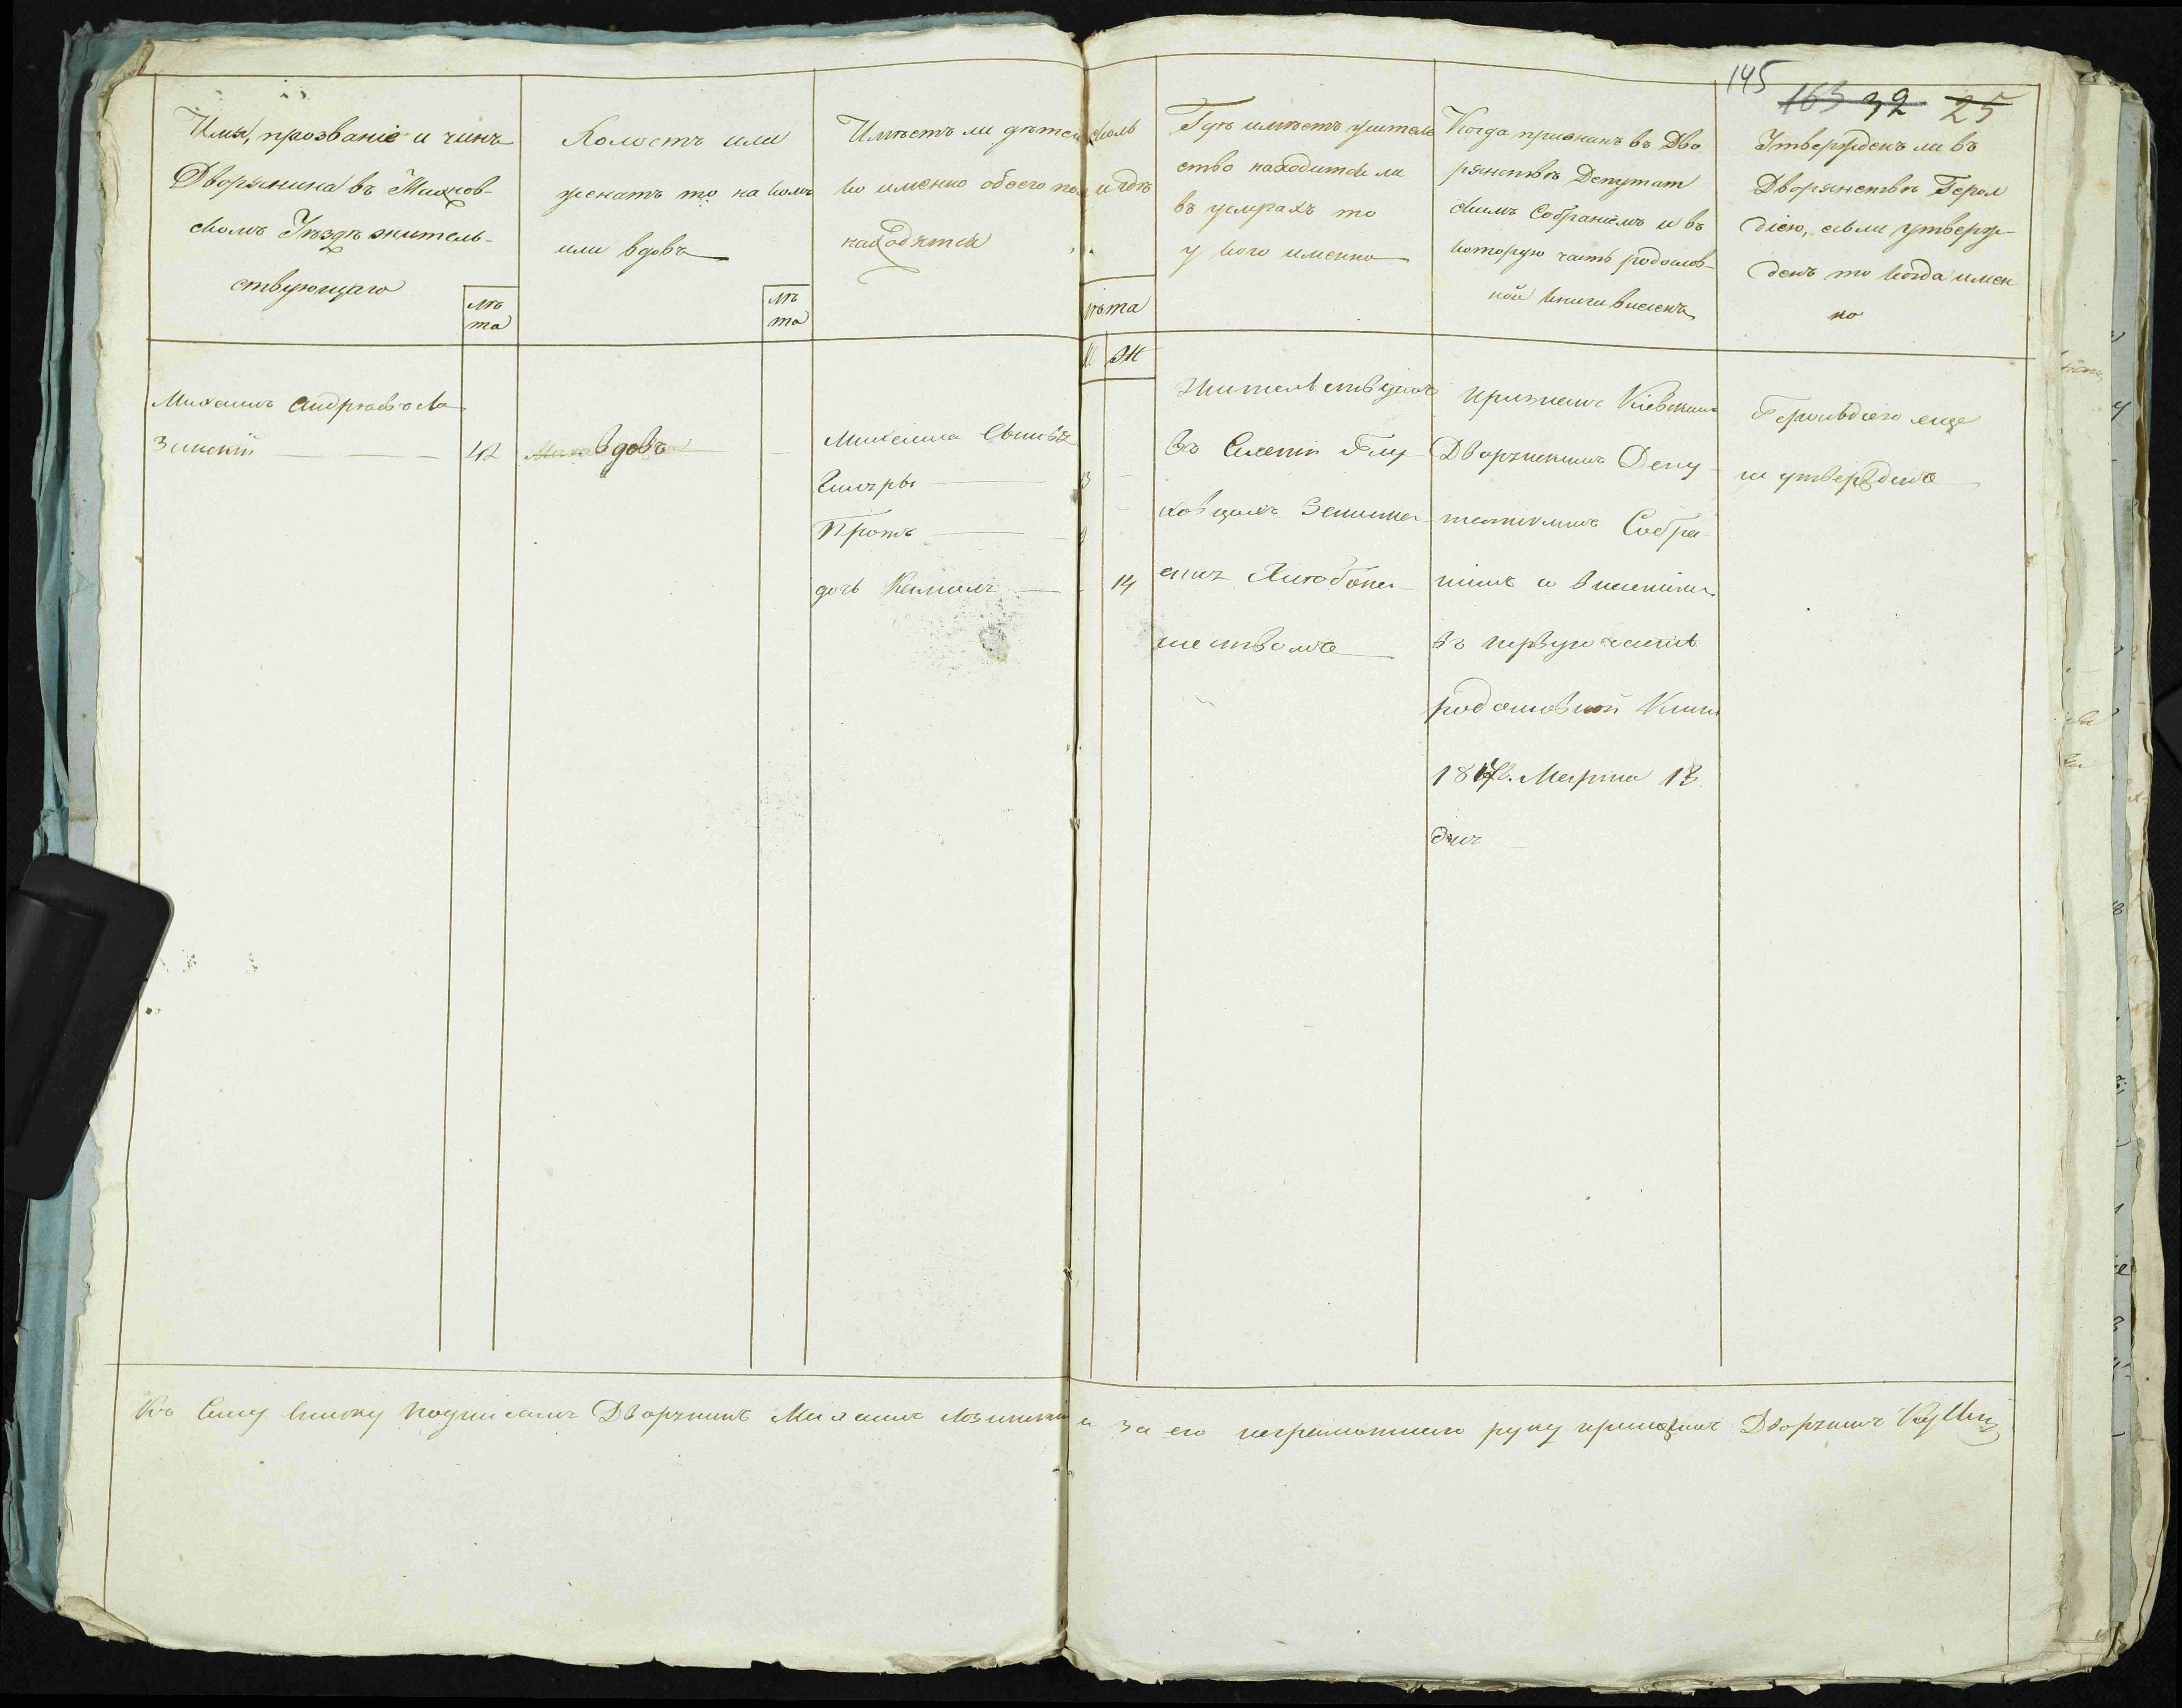 145
163 32 25
Имя, прозваніе и чинъ
Дворянина въ Махнов-
скомъ Уѣздѣ житель-
ствующаго
Лѣ
та
Холостъ или
женатъ то на комъ
или вдовъ
Лѣ
та
Имѣетъ ли дѣтей сколь
ко именно обоего пола и гдѣ
находятся
лѣта
М. Ж
Гдѣ имѣетъ житель
ство находится ли
въ услугахъ то
у кого именно
Когда признанъ въ Дво
рянствѣ Депутат
скимъ Собраніемъ и въ
которую часть родослов-
ной книги внесенъ
Утвержденъ ли въ
Дворянствѣ Герол
діею, если утверж-
денъ то когда имен
но
Михаилъ Андреевъ Ло
зинскій 42
вдовъ
Михаила Сыновья
Прота
дочь 14
Жительствуетъ
въ Селеніи Глу
ховцахъ
ществомъ
признанъ Кіевскимъ
Дворянскимъ Депу
татскимъ Собра
ніемъ и внесенъ
въ первую часть
родословной Книги
Марта 13
дня
Герольдіею еще
не утвержденъ
Къ Сему списку подписалъ Дворянинъ Михаилъ Лозинскій а за его неграмотного руку приложилъ Дворянинъ